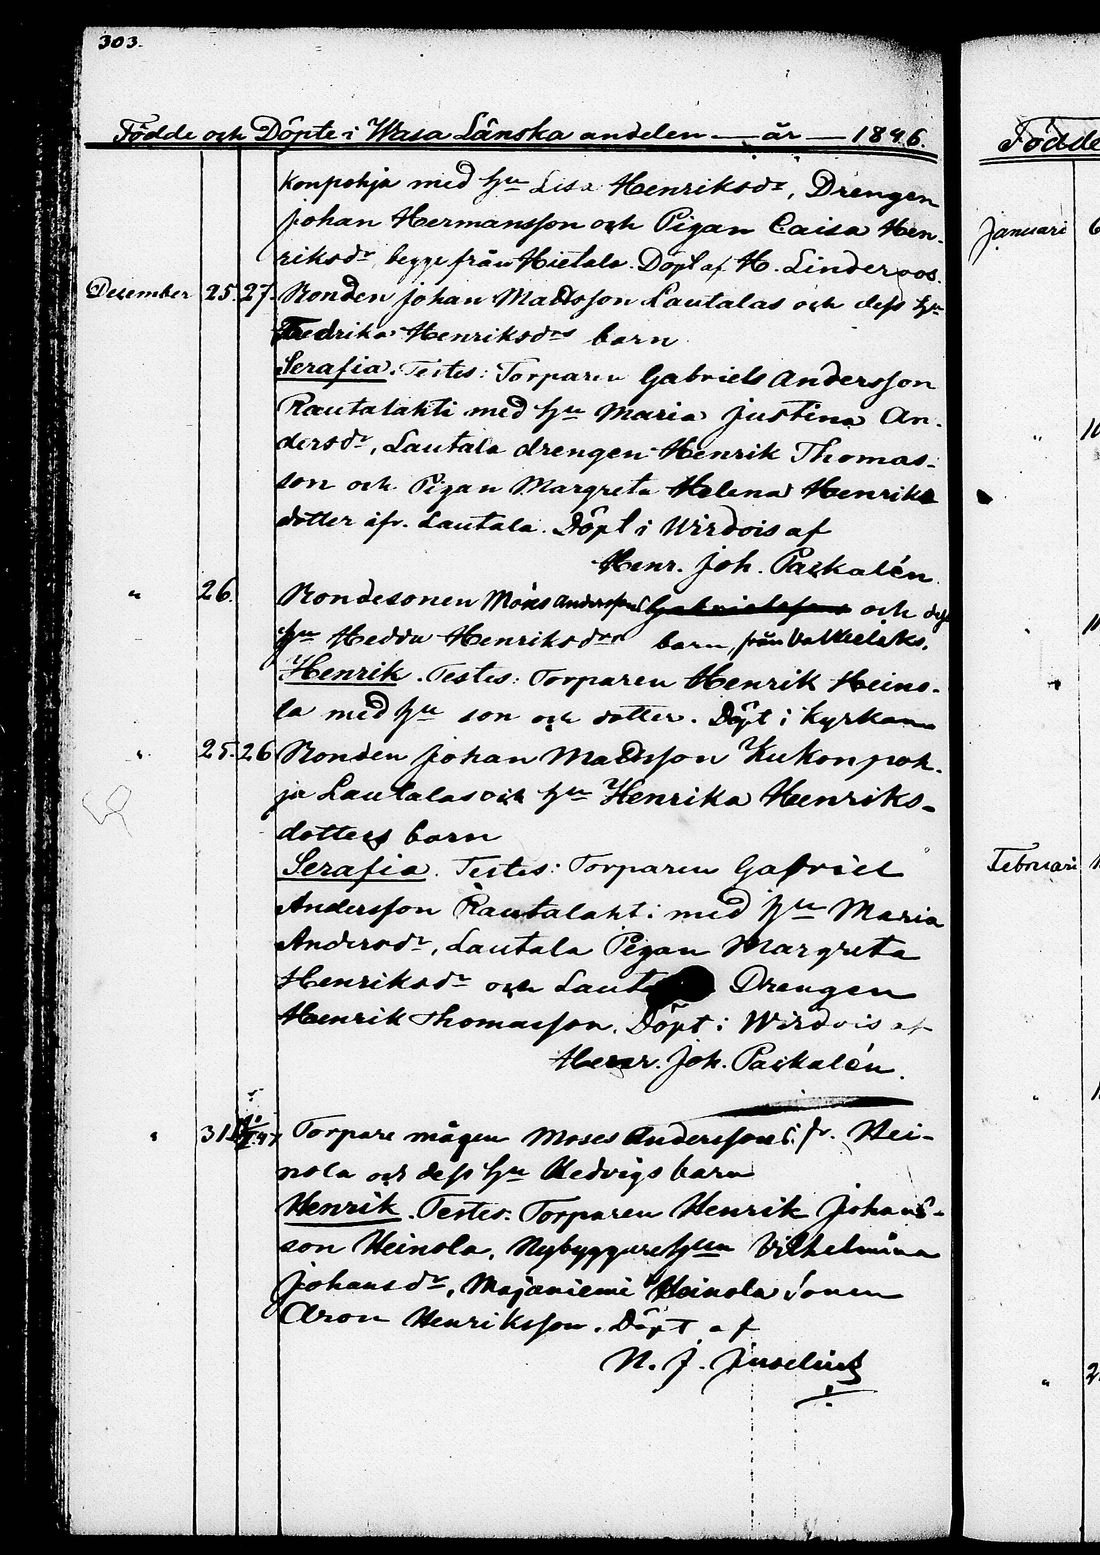 303.
Födde och Döpte i Wasa Länska andelen — år — 1846.
konpohja med hu Lisa Henriksdr, Drengen
Johan Hermansson och Pigan Caisa Hen-
riksdr, begge från Hietala. Döpt af H. Linderoos.
December 25. 27. Bonden Johan Mattsson Lautalas och dess hu
Fredrika Henriksdrs barn
Serafia. Testes: Torparen Gabriels Andersson
Rautalahti med hu Maria Justina An-
dersdr, Lautala drengen Henrik Thomas-
son och Pigan Margreta Helena Henriks
dotter ifr. Lautala. Döpt i Wirdois af
Henr. Joh. Paskalén.
" 26. Bondesonen Måns Anderssons och dess
hu Hedda Henriksdrs barn från
Henrik. Testes: Torparen Henrik Heino-
la med hu son och dotter. Döpt i Kyrkan
" 25. 26 Bonden Johan Mattsson Kukonpoh-
ja Lautalas och hu Henrika Henriks-
dotters barn
Serafia. Testes: Torparen Gabriel
Andersson Rautalahti med hu Maria
Andersdr, Lautala Pigan Margreta
Henriksdr och Drengen
Henrik Thomasson. Döpt i Wirdois af
Henr. Joh. Paskalén.
" 31 Torpare mågen Moses Anderssons fr. Hei-
nola och dess hu Hedvigs barn
Henrik. Testes. Torparen Henrik Johans-
son Heinola, Nybyggarehun Vilhelmina
Johansdr, Majaniemi Heinola sonen
Aron Henriksson. Döpt af
N. J. Juselius
Födde
Januari 6
" 10
"
Februari
"